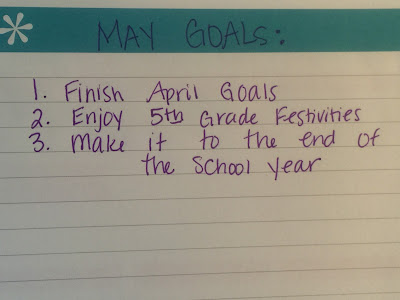 MAY GOALS:
1. Finish April Goals
2. Enjoy 5th Grade Festivities
3. Make it to the end of
the School year